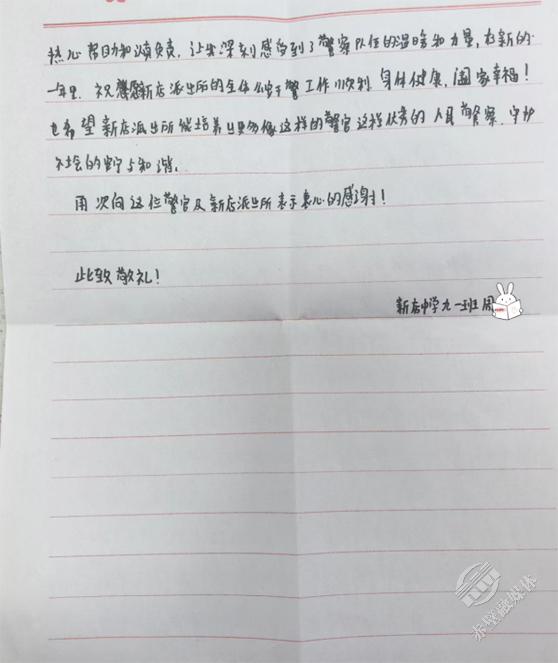 热心帮助和负责，让我深刻感受到了警察队伍的温暖和力量，在新的
一年里，祝愿新店派出所的全体公安干警工作顺利 身体健康，阖家幸福！
也希望新店派出所能培养出更多像这样的警官这样优秀的人民警察，守护
社会的安宁与和谐。
再次向这位警官及新店派出所表示衷心的感谢！
此致敬礼！
新店中学九一班周
赤壁融媒体